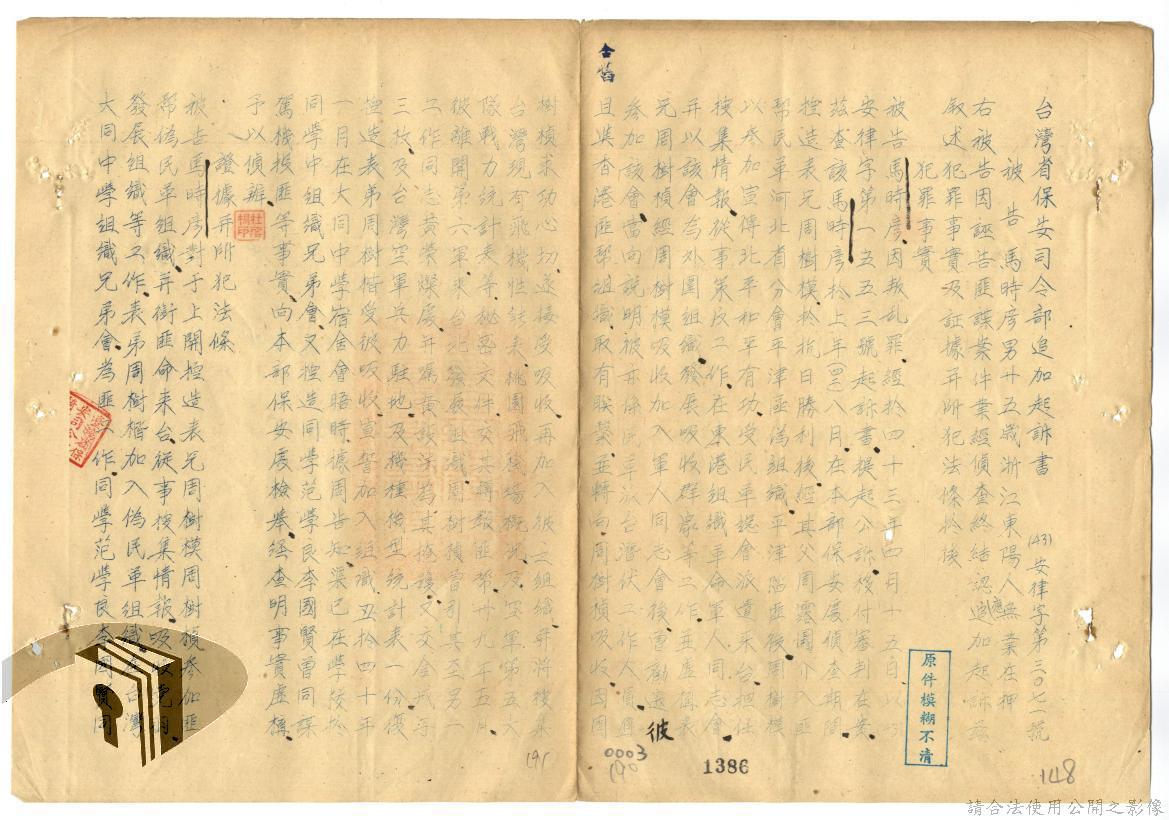 台灣省保安司令部追加起訴書
(43)安律字第三〇七二號
被告 馬時彥 男 廿五歲 浙江東陽人 無業 在押
右被告因誣告匪諜案件業經偵查終結認應追加起訴茲
敘述犯罪事實及証據并所犯法條於後
犯罪事實
被告馬時彥因叛乱罪經於四十三年四月十五日以
安律字第一五五三號起訴書提起公訴後付審判在案
茲查該馬時彥於上年八月在本部保安處偵查期間
捏造表兄周樹模於抗日勝利後經其父周
民革河北省分會平津區偽組織平津陷匪後周樹模
以參加宣傳北平和平有功受民革總會派遣來台担任
搜集情報從事策反工作在東港組織革命軍人同志會
并以該會為外圍組織發展吸收群眾等工作並虛偽表
兄周樹楨經周樹模吸收加入軍人同志會後當勸邀
參加該會當向說明被亦係民革派台潛伏工作人員
且與香港匪幫組織取有聯繫並轉向周樹楨吸收因周
彼
樹楨求功心切遂接受吸收再加入彼之組織并將搜集
台灣現有飛機性能表桃園飛機場概況及空軍第五大
隊戰力統計表等秘密文件交其轉報匪幫廿九年五月
彼離開第六軍來台北發展組織周樹楨當引其至
工作同志黃榮燦處并囑黃設法為其掩護又交金戒子
三枚及台灣空軍兵力駐地及機種機型統計表一份復
捏造表弟周樹楷受彼吸收宣誓加入組織並於四十年
一月在大同中學宿舍會晤時據周告知渠已在學校於
同學中組織兄弟會又捏造同學范學良李國賢曾同謀
駕機投匪等事實向本部保安處檢舉經查明事實虛構
予以偵辦
證據并所犯法條
被告馬時彥對于上開捏造表兄周樹模周樹楨參加匪
幫偽民革組織并銜匪命來台從事搜集情報吸收
發展組織等工作表弟周樹楷加入偽民革組織在台灣
大同中學組織兄弟會為匪工作同學范學良李國賢同
原件模糊不清
1386
0003
190
191
148
請合法使用公開之影像